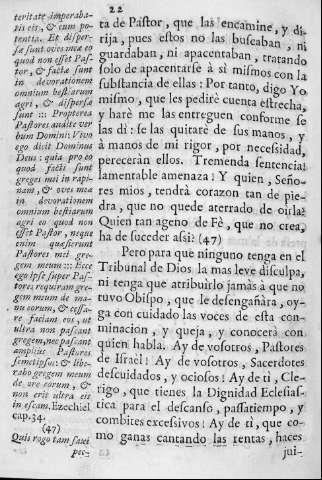 22
teritate imperaba-
tis eis, & cum po-
tentia. Et disper-
sæ sunt oves meæ eo
quod non esset Pas-
tor, & factæ sunt
in devorationem
omnium bestiarum
agri, & dispersæ
sunt ::: Propterea
Pastores audite ver
bum Domini: Vivo
ego dicit Dominus
Deus: quia pro eo
quod facti sunt
greges mei in rapi-
nam, & oves meæ
in devorationem
omnium bestiarum
agri eo quod non
esset Pastor, neque
enim quæsierunt
Pastores mei gre-
gem meum ::: Ecce
ego ipse super Pas-
tores requiram gre-
gem meum de ma-
nu eorum, & cessa-
re faciam eos, ut
ultra non pascant
gregem, nec pascant
amplius Pastores
semetipsos: & libe-
rabo gregem meum
de ore eorum, &
non erit ultra eis
in escam. Ezechiel
cap. 34.
(47)
Quis rogo tam sævi
per-
ta de Pastor, que las encamine, y di-
rija, pues estos no las buscaban, ni
guardaban, ni apacentaban, tratando
solo de apacentarse à sì mismos con la
substancia de ellas: Por tanto, digo Yo
mismo, que les pedirè cuenta estrecha,
y harè me las entreguen conforme se
las dì: se las quitarè de sus manos, y
à manos de mi rigor, por necessidad,
pereceràn ellos. Tremenda sentencia!
lamentable amenaza! Y quien, Seño-
res mios, tendrà corazon tan de pie-
dra, que no quede aterrado de oirla?
Quien tan ageno de Fè, que no crea,
ha de suceder assi? (47)
Pero para que ninguno tenga en el
Tribunal de Dios la mas leve disculpa,
ni tenga que atribuirlo jamàs à que no
tuvo Obispo, que le desengañàra, oy-
ga con cuidado las voces de esta con-
minacion, y queja, y conocerà con
quien habla. Ay de vosotros, Pastores
de Israel! Ay de vosotros, Sacerdotes
descuidados, y ociosos! Ay de ti, Cle-
rigo, que tienes la Dignidad Eclesias-
tica para el descanso, passatiempo, y
combites excessivos! Ay de ti, que co-
mo ganas cantando las rentas, haces
jui-